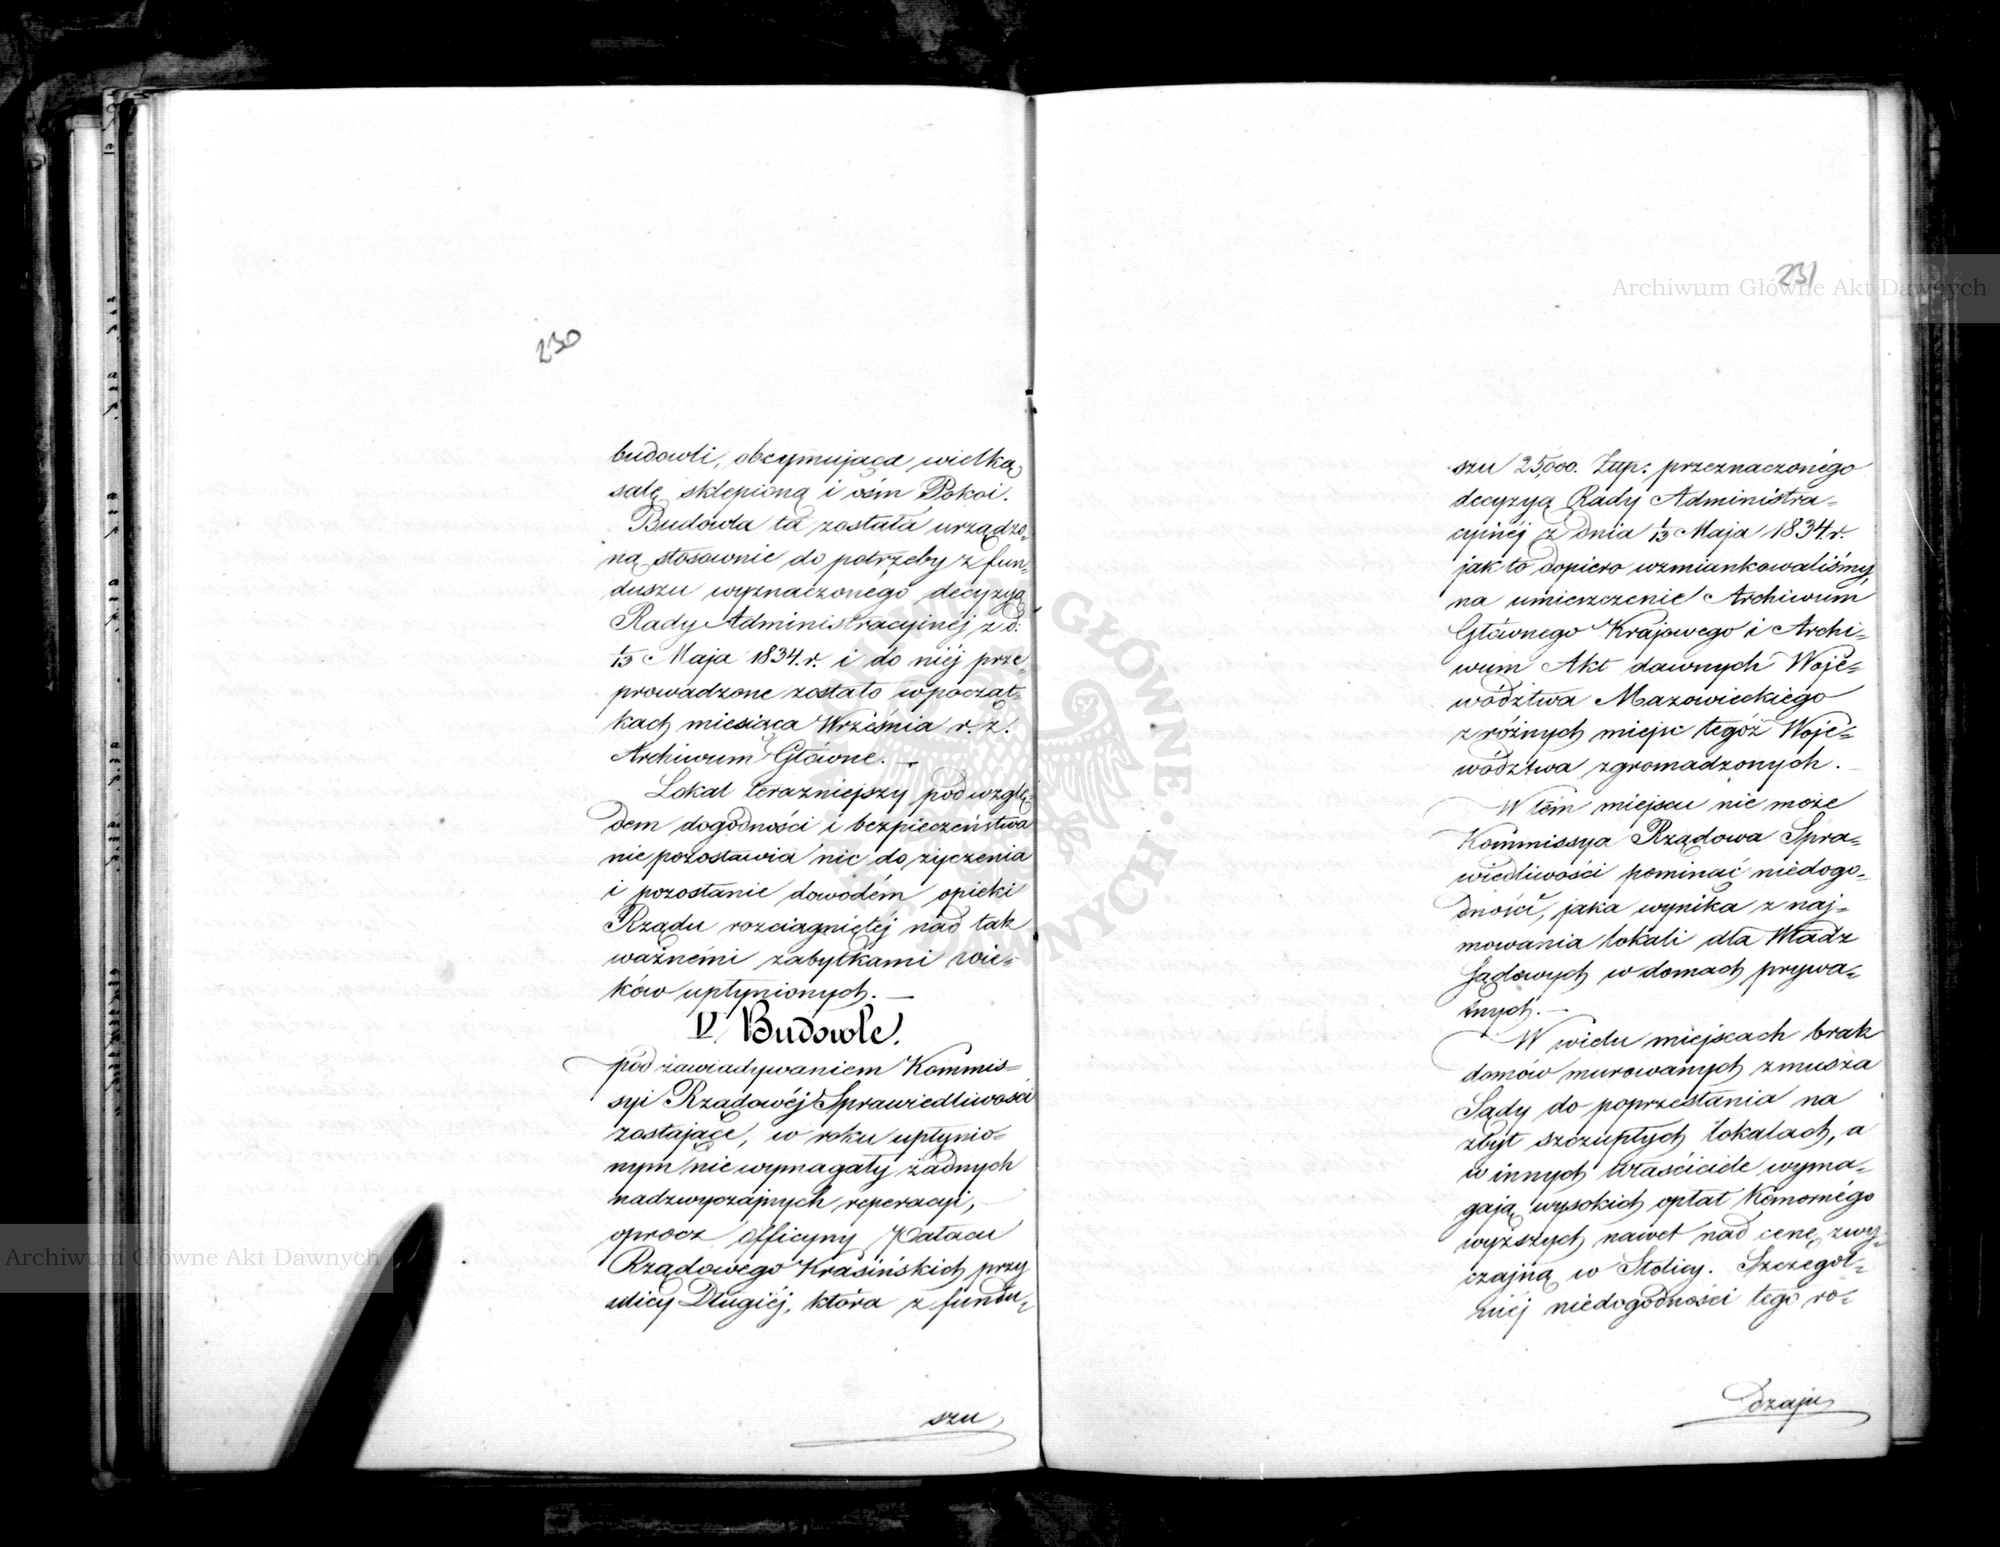 230
budowli, obeymująca wielką
salę sklepioną i ośm Pokoi.
Budowla ta została urządzo-
ną stosownie do potrzeby z fun-
duszu wyznaczonégo decyzyą
Rady Administracyjnéj z d:
1/13 Maja 1834. r. i do niéj prze-
prowadzone zostało w począt-
kach miesiąca Września r. z.
Archiwum Główne. —
Lokal teraźniejszy pod wzglę-
dem dogodności i bezpieczeństwa
nie pozostawia nic do życzenia
i pozostanie dowodém opieki
Rządu rozciągniętéj nad tak
ważnémi zabytkami wie-
ków upłynionych. —
IV. Budowle.
pod zawiadywaniem Kommis-
syi Rządowéj Sprawiedliwości
zostające, w roku upłynio-
nym nie wymagały żadnych
nadzwyczajnych reperacyi,
oprócz officyny Pałacu
Rządowego Krasińskich przy
ulicy Długiéj, która z fundu-
szu
231
szu 25,000. Złp: przeznaczonégo
decyzyą Rady Administra-
cyjnéj z dnia 1/13 Maja 1834. r.
jak to dopiero wzmiankowaliśmy,
na umieszczenie Archiwum
Głównego Krajowego i Archi-
wum Akt dawnych Woje-
wództwa Mazowieckiégo
z różnych miejsc tegóż Woje-
wództwa zgromadzonych.
W tém miejscu nie może
Kommissya Rządowa Spra-
wiedliwości pominąć niedogo-
dności, jaka wynika z naj-
mowania lokali dla Władz
Sądowych w domach prywa-
tnych. —
W wielu miejscach brak
domów murowanych zmusza
Sądy do poprzestania na
zbyt szczupłych lokalach, a
w innych właściciele wyma-
gają wysokich opłat Komornégo
wyższych nawet nad cenę zwy-
czajną w Stolicy. Szczegól-
niéj niedogodności tego ro-
dzaju
Archiwum Główne Akt Dawnych
Archiwum Główne Akt Dawnych
ARCHIWUM GŁÓWNE AKT DAWNYCH